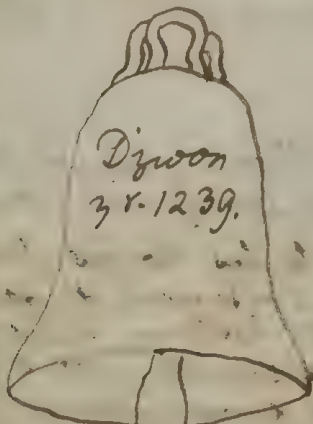 Dzwon
z r. 1239.